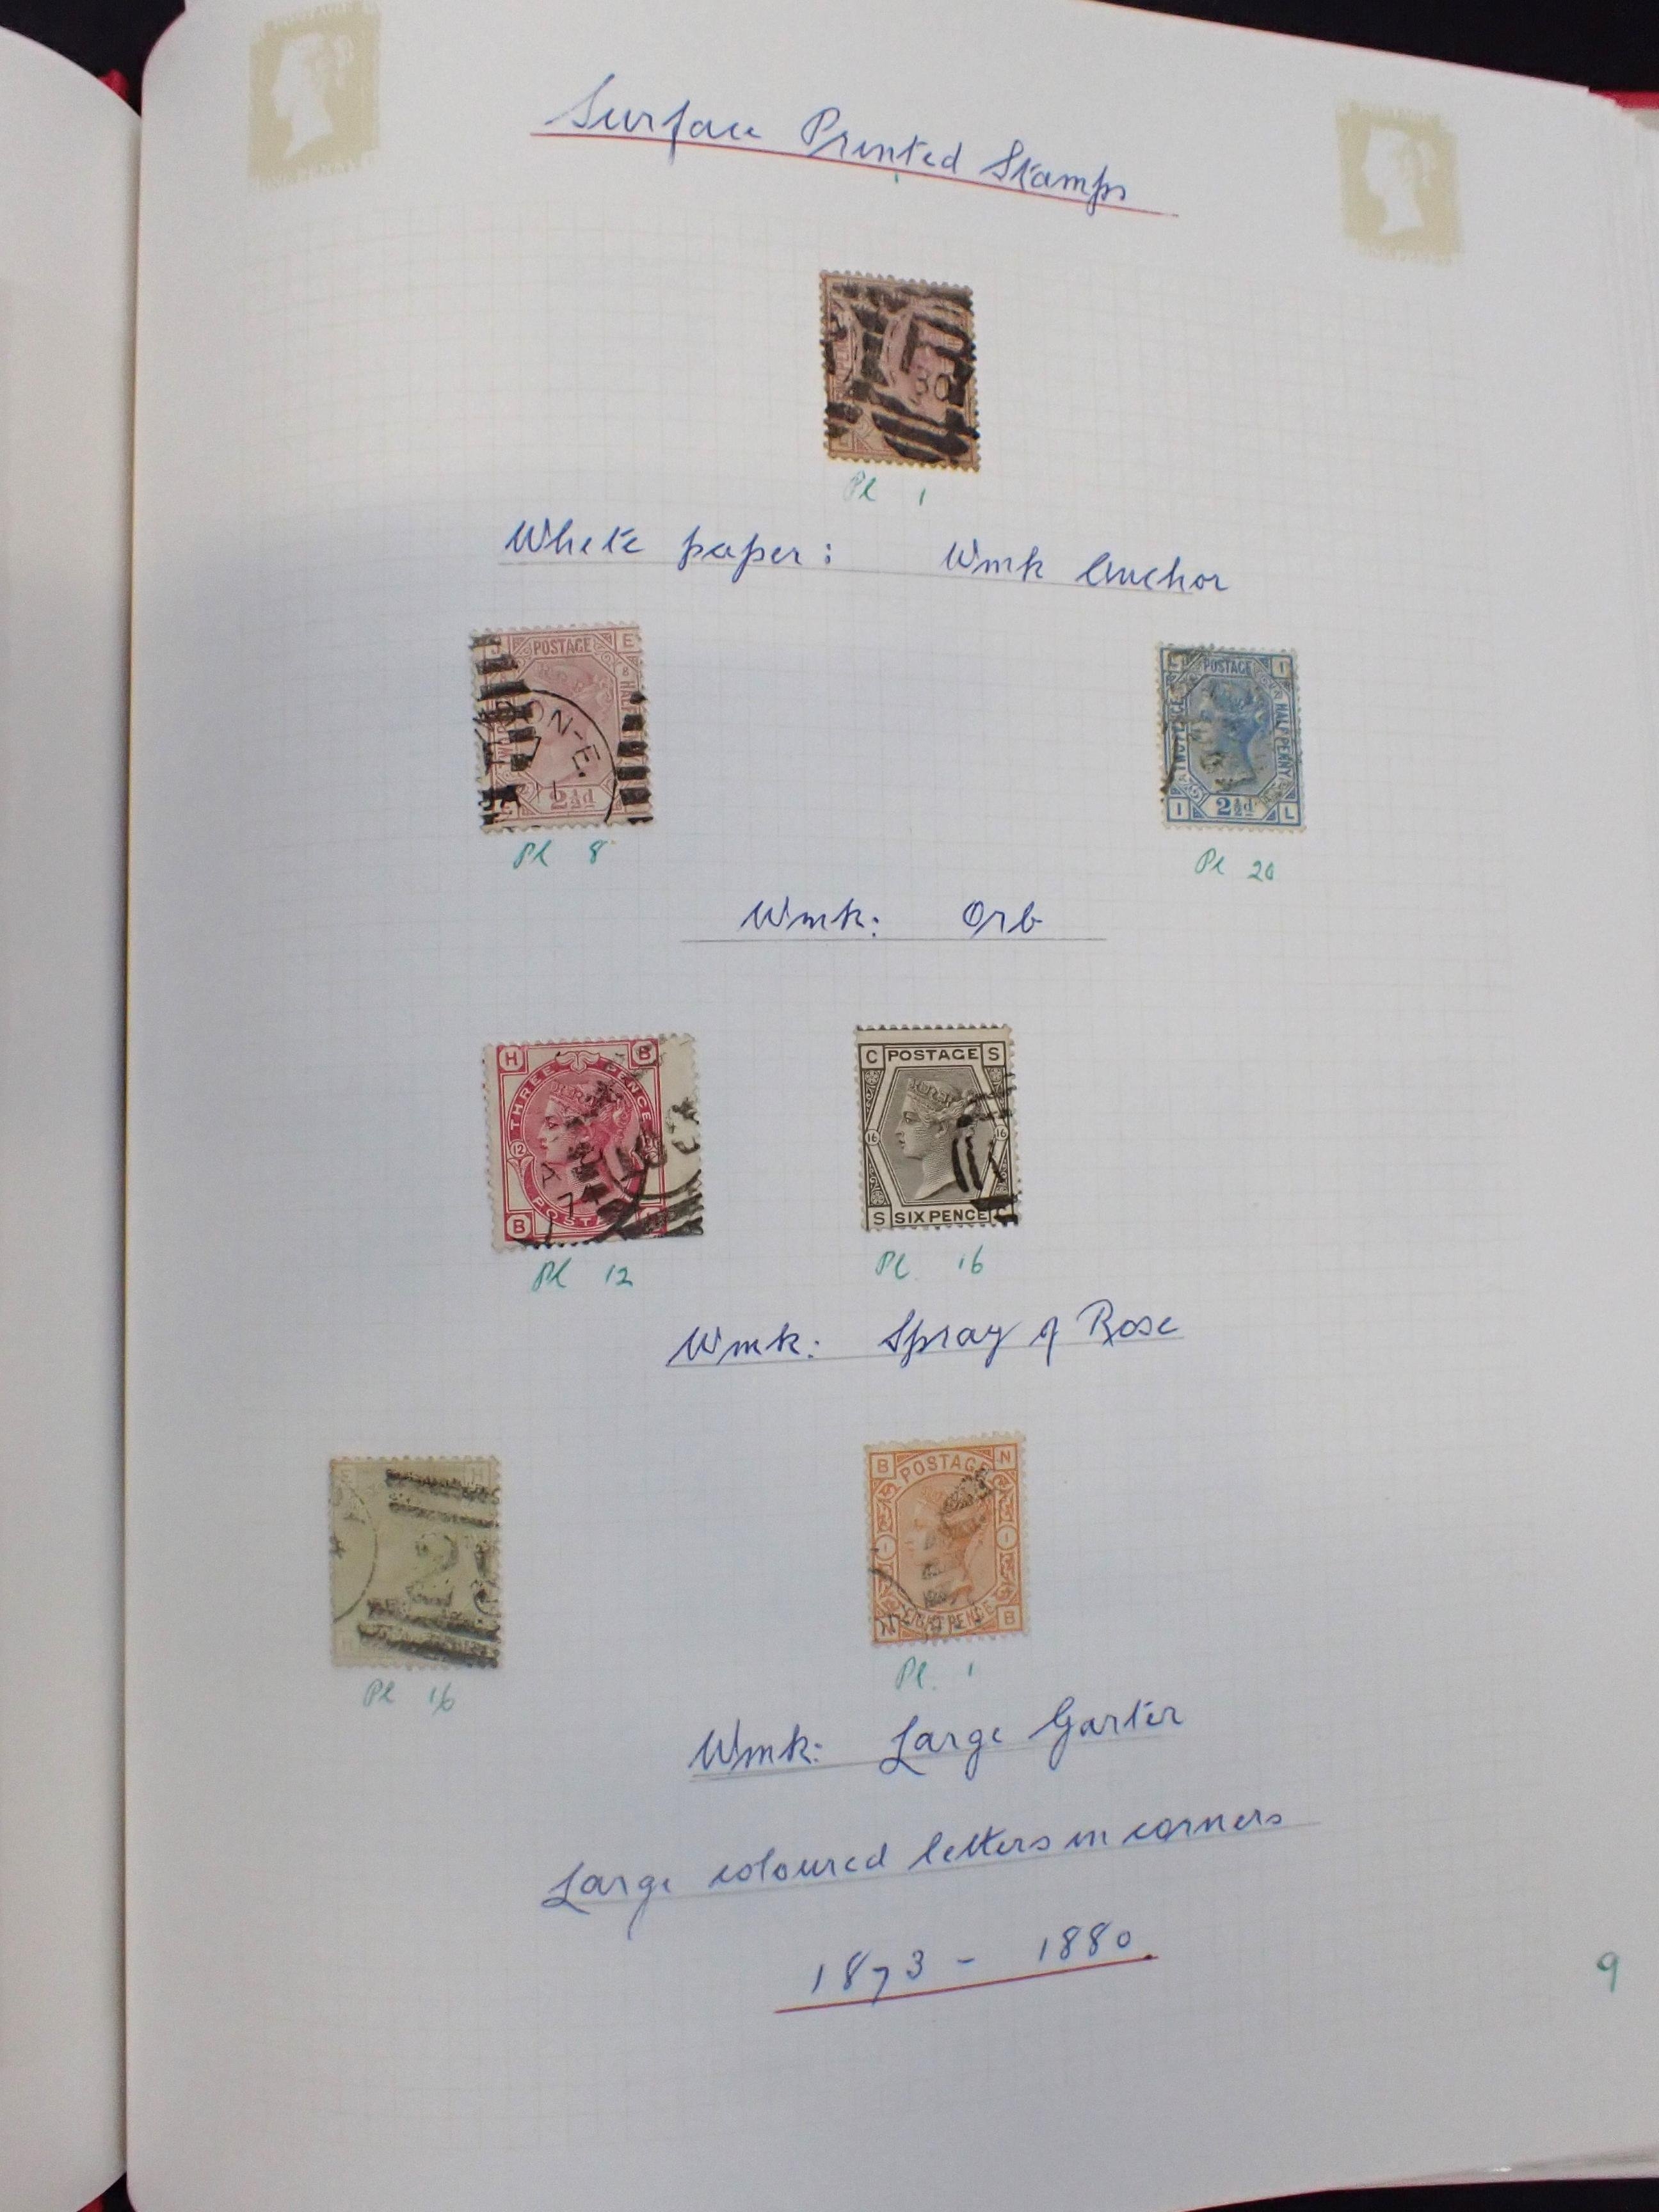 Surface Printed Stamps
Pl 1
White paper: Wmk Anchor
J POSTAGE E
HALF
ON-E.
2½d
Pl 8
L POSTAGE I
TWOPENCE HALFPENNY
I 2½d L
Pl 20
Wmk: Orb
H B
THREE PENCE
12
A
74
B POSTA
Pl 12
C POSTAGE S
16 16
S SIX PENCE C
Pl. 16
Wmk: Spray of Rose
H
2
Pl 16
B POSTAGE N
1 1
N EIGHT PENCE B
Pl. 1
Wmk: Large Garter
Large coloured letters in corners
1873 - 1880.
9